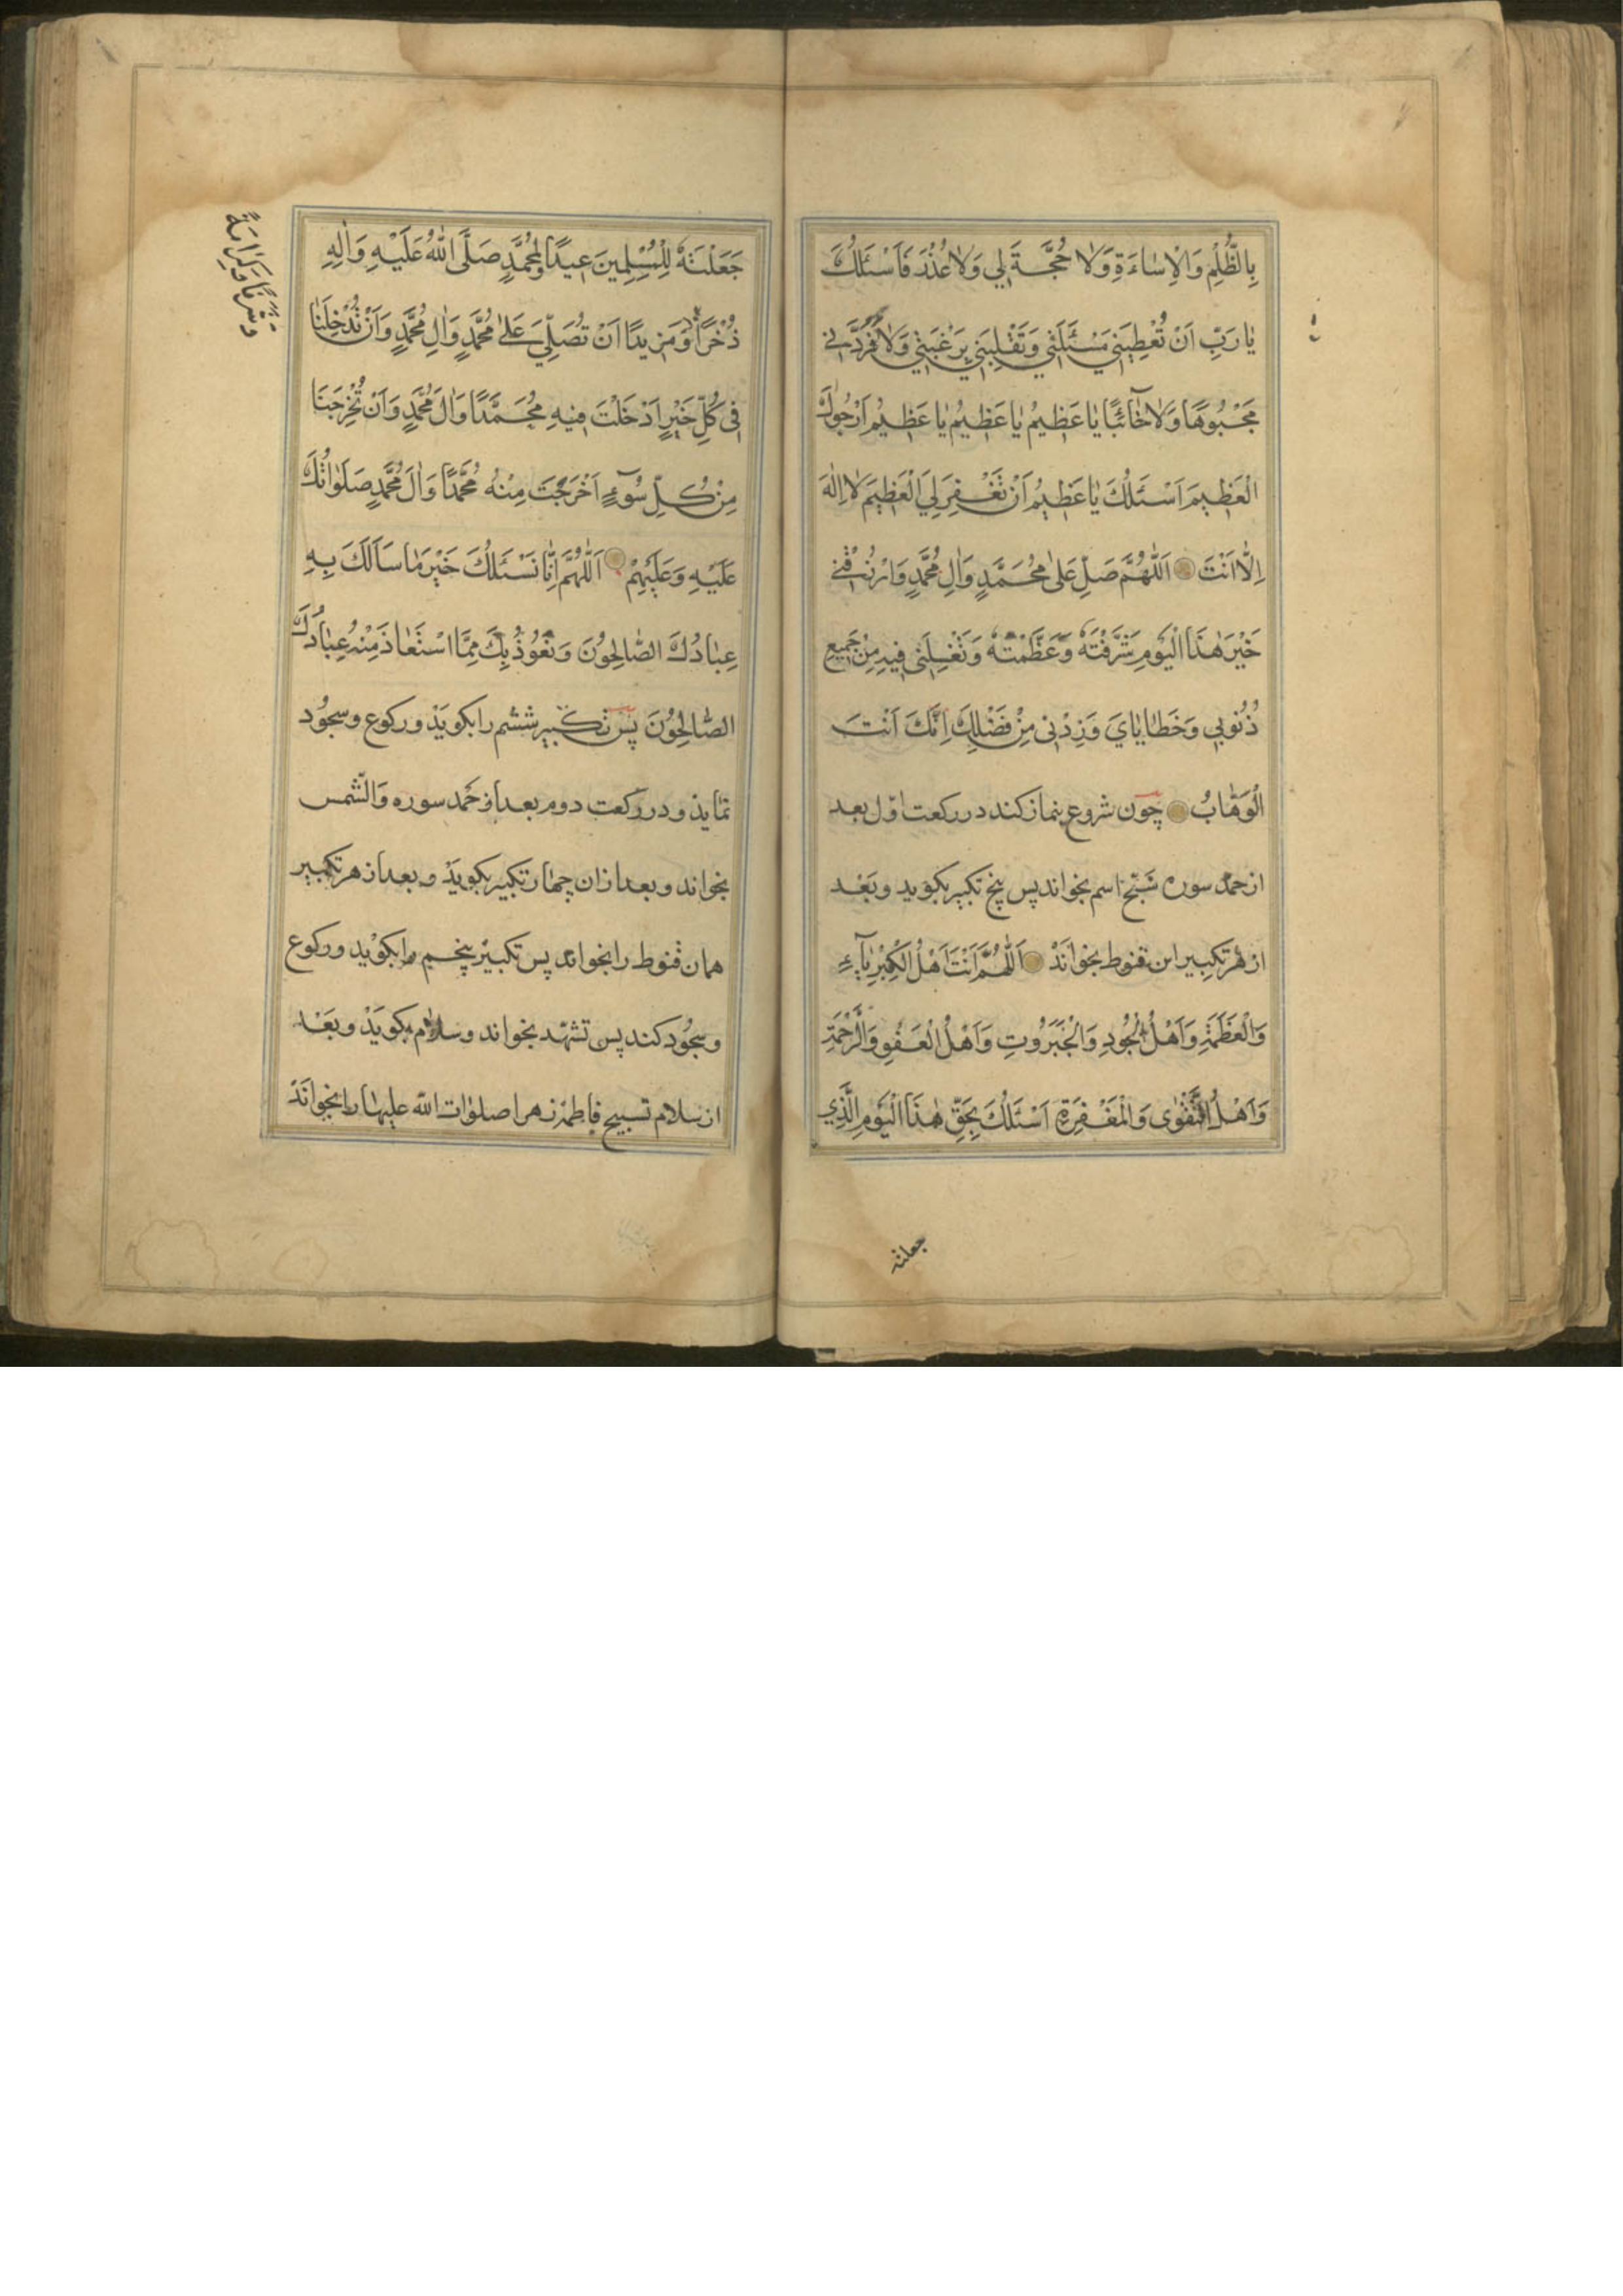 بِالظُّلْمِ وَالْاِسٰاءَةِ وَلٰا حُجَّةَ لِي وَلٰا عُذْرَ فَاَسْئَلُكَ
يٰا رَبِّ اَنْ تُعْطِيَنِي مَسْئَلَتِي وَتَقْلِبَنِي بِرَغْبَتِي وَلٰا تَرُدَّنِي
مَجْبُوهًا وَلٰا خٰائِبًا يٰا عَظِيمُ يٰا عَظِيمُ يٰا عَظِيمُ اَرْجُوكَ
الْعَظِيمَ اَسْئَلُكَ يٰا عَظِيمُ اَنْ تَغْفِرَ لِيَ الْعَظِيمَ لٰا اِلٰهَ
اِلّٰا اَنْتَ اَللّٰهُمَّ صَلِّ عَلىٰ مُحَمَّدٍ وَاٰلِ مُحَمَّدٍ وَارْزُقْنِي
خَيْرَ هٰذَا الْيَوْمِ شَرَّفْتَهُ وَعَظَّمْتَهُ وَتَغْسِلَنِي فِيهِ مِنْ جَمِيعِ
ذُنُوبِي وَخَطٰايٰايَ وَزِدْنِي مِنْ فَضْلِكَ اِنَّكَ اَنْتَ
الْوَهّٰابُ چون شروع بنماز کند در رکعت اوّل بعد
از حمد سوره سَبِّح اسم بخواند پس پنج تکبیر بکوید و بَعْد
از هر تکبیر این قنوط بخوانَدْ اَللّٰهُمَّ اَنْتَ اَهْلُ الْكِبْرِيٰآءِ
وَالْعَظَمَةِ وَاَهْلُ الْجُودِ وَالْجَبَرُوتِ وَاَهْلُ الْعَفْوِ وَالرَّحْمَةِ
وَاَهْلُ التَّقْوٰى وَالْمَغْفِرَةِ اَسْئَلُكَ بِحَقِّ هٰذَا الْيَوْمِ الَّذِي
جعلته
جَعَلْتَهُ لِلْمُسْلِمِينَ عِيدًا وَلِمُحَمَّدٍ صَلَّى اللّٰهُ عَلَيْهِ وَاٰلِهِ
ذُخْرًا وَمَزِيدًا اَنْ تُصَلِّيَ عَلىٰ مُحَمَّدٍ وَاٰلِ مُحَمَّدٍ وَاَنْ تُدْخِلَنٰا
فِي كُلِّ خَيْرٍ اَدْخَلْتَ فِيهِ مُحَمَّدًا وَاٰلَ مُحَمَّدٍ وَاَنْ تُخْرِجَنَا
مِنْ كُلِّ سُوٓءٍ اَخْرَجْتَ مِنْهُ مُحَمَّدًا وَاٰلَ مُحَمَّدٍ صَلَوٰاتُكَ
عَلَيْهِ وَعَلَيْهِمْ اَللّٰهُمَّ اِنّٰا نَسْئَلُكَ خَيْرَ مٰا سَاَلَكَ بِهِ
عِبٰادُكَ الصّٰالِحُونَ وَنَعُوذُ بِكَ مِمَّا اسْتَعٰاذَ مِنْهُ عِبٰادُكَ
الصّٰالِحُونَ پس تکبیر ششم را بکویَدْ و رکوع و سجُود
نماید و در رکعت دوم بعد از حَمد سوره وَالشّمس
بخواند و بعد از ان چهار تکبیر بکویَدْ و بعد از هر تکبیر
همان قنوط را بخواند پس تکبیر پنجم را بکوید و رکوع
و سجُود کند پس تشهّد بخواند و سلام بکویَدْ و بَعْد
از سلام تسبیح فاطمهٔ زهرا صلوٰات الله علیها را بخوانَدْ
وَشَرَفًا وَكَرَامَةً